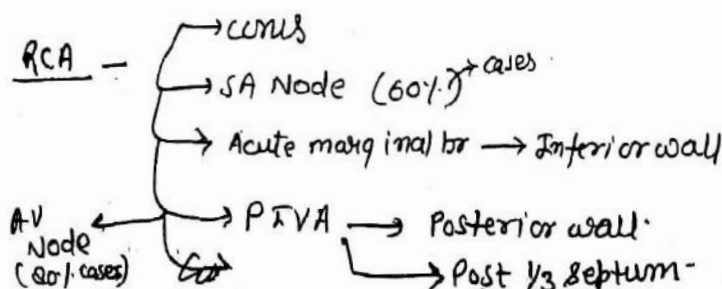 RCA –
conus
SA Node (60%) → cases
Acute marginal br → Inferior wall
AV Node (80% cases)
PIVA → Posterior wall.
→ Post 1/3 septum-